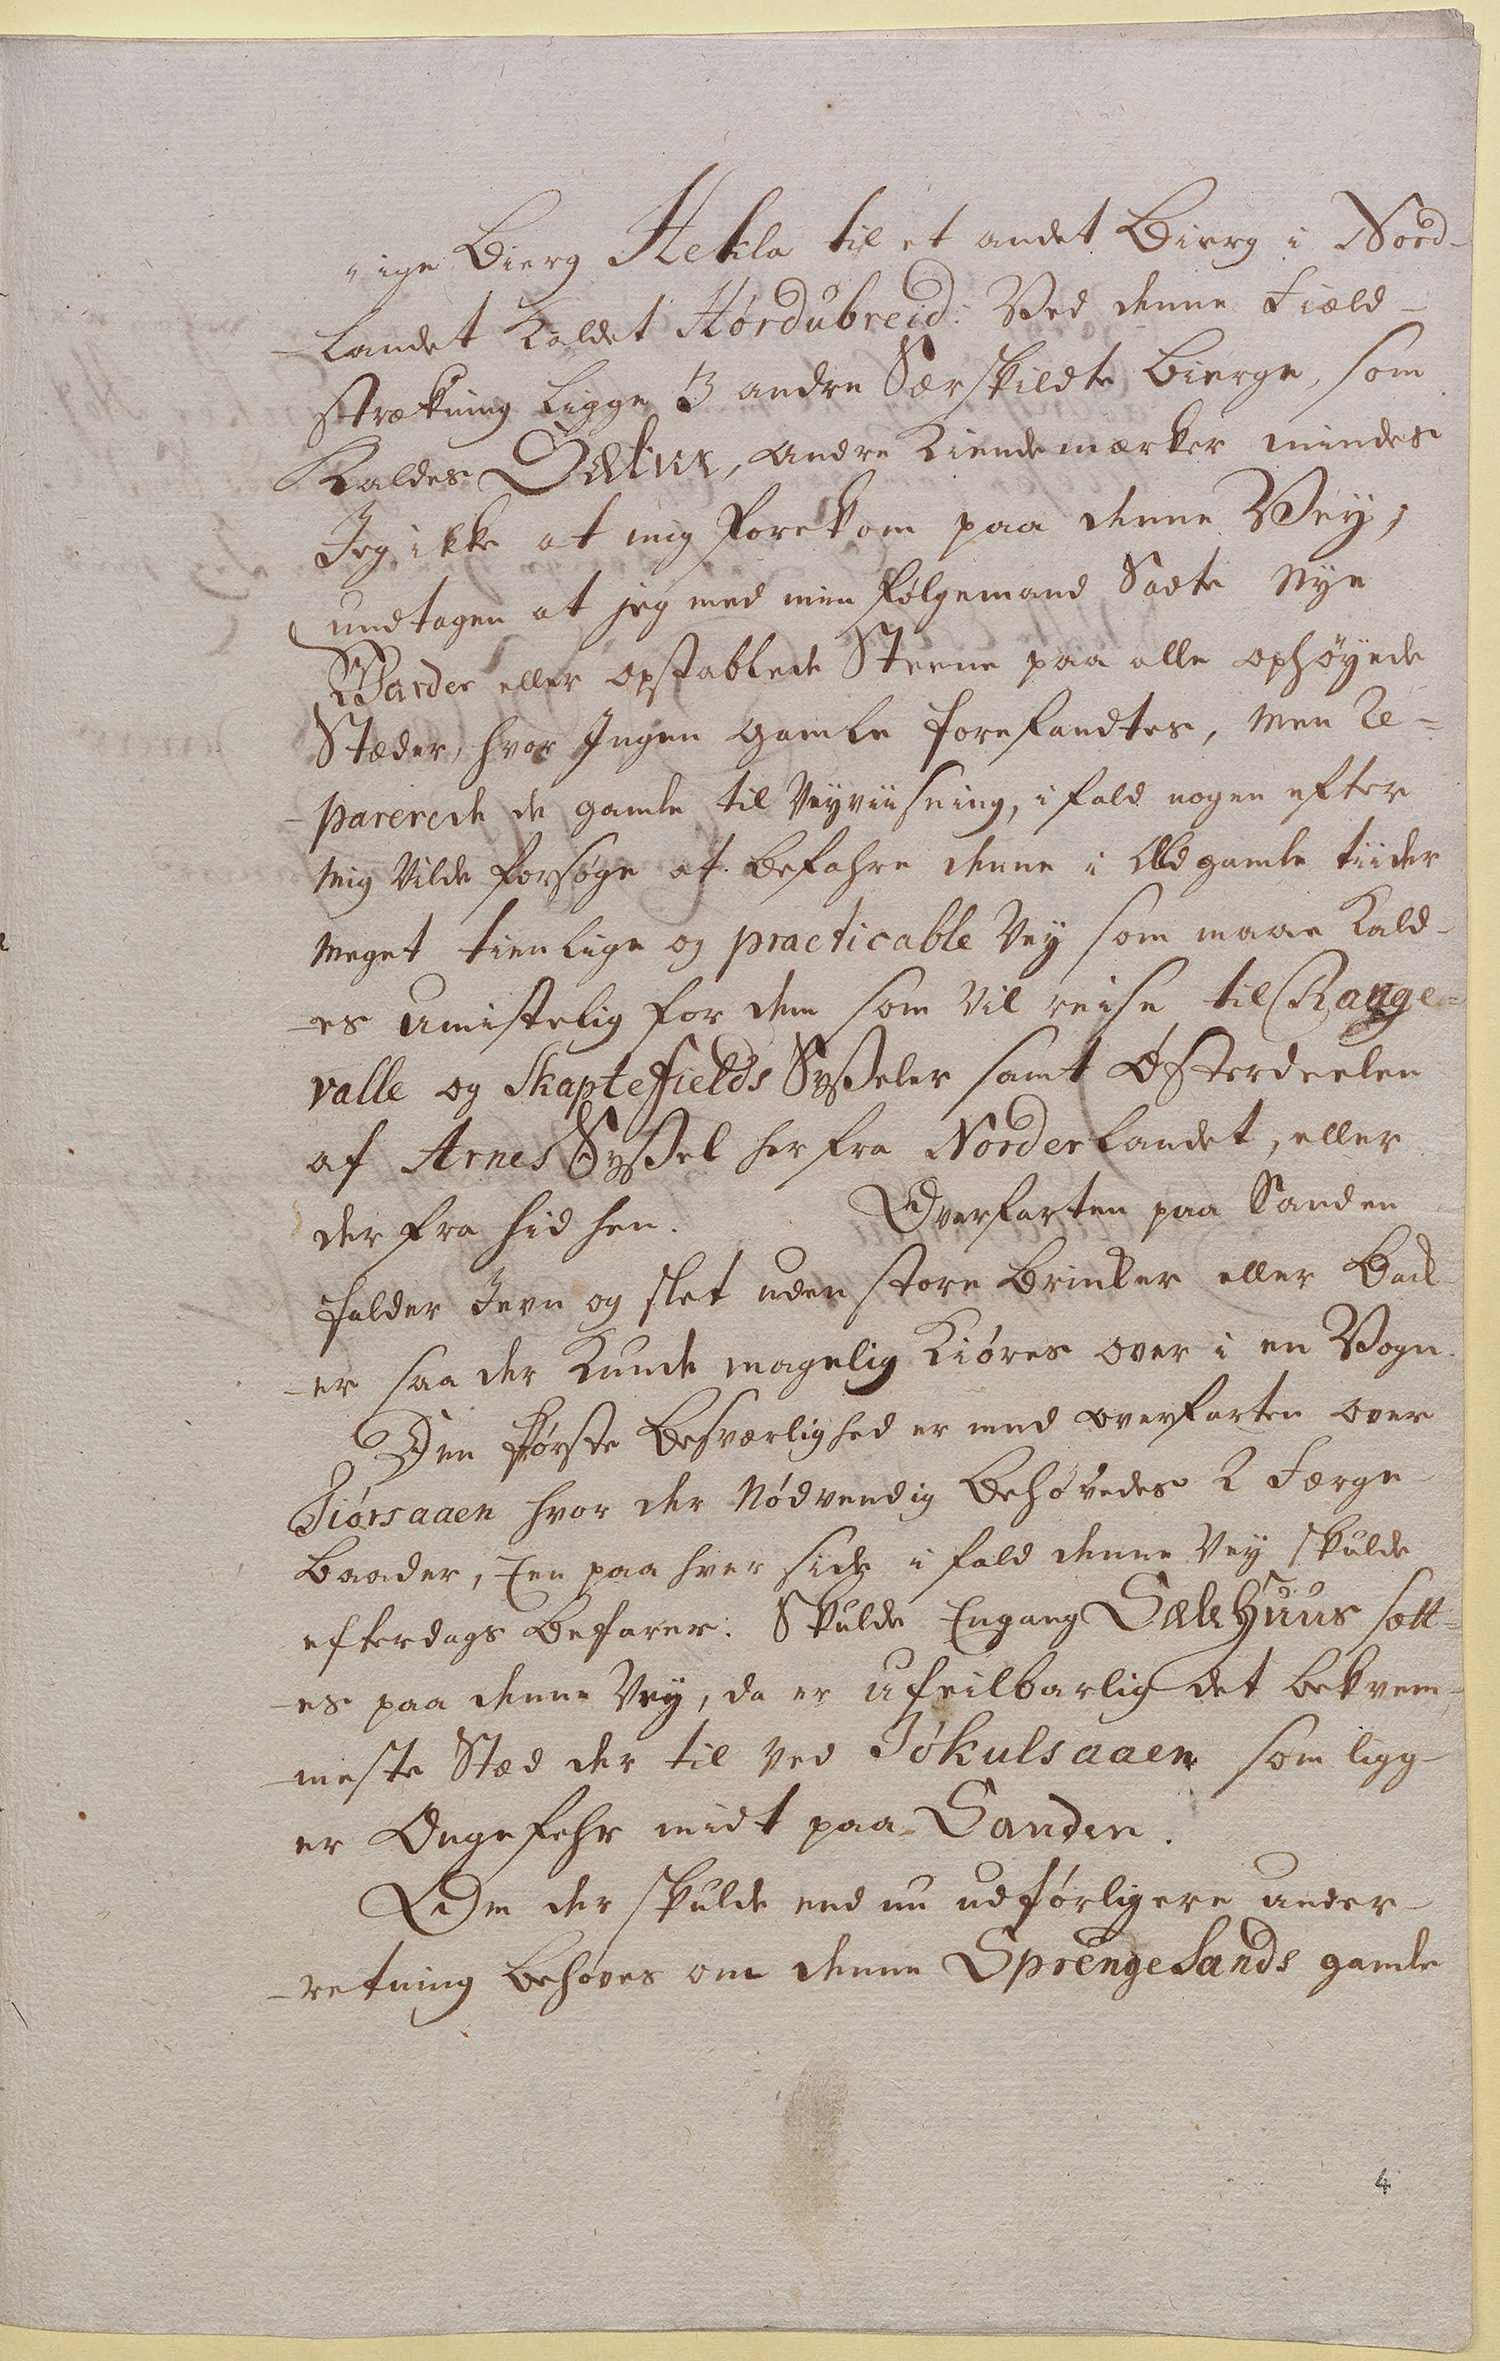 -ige Bierg Hekla til et andet Bierg i Nord-
-landet kaldet Hørdubreid: Ved denne Field-
strækning ligge 3 andre Særskildte Bierge, som
kaldes Dÿkur, andre Kiendemærker mindes
Jeg ikke at mig forekom paa denne Vey,
undtagen at jeg med min følgemand Sadte Nye
Warder eller opstablede Steene paa alle ophøyede
Stæder, hvor Ingen gamle forefandtes, men re-
-parerede de gamle til Veyviisning, i fald nogen efter
mig vilde forsøge at befahre denne i Old gamle tiider
meget tienlige og practicable Vey som maae kald-
-es umistelig for dem som vil reise til Range-
valle og Skaptefields Sysseler samt Østerdeelen
af Arnes Syssel her fra Norderlandet, eller
der fra hid hen. Overfarten paa Sanden
falder Jevn og slet uden store brinker eller Back-
-er saa der kunde magelig kiøres over i en Vogn.
Den første besværlighed er med overfarten over
Tiørsaaen hvor der nødvendig behøvedes 2 Færge-
baader, Een paa hver side i fald denne Vey skulde
efterdags befares. Skulde Engang Sælehuus sætt-
-es paa denne Vey, da er ufeilbarlig det bekvem-
-meste Stæd der til ved Jøkulsaaen som ligg-
er Ongefehr midt paa Sanden.
Om der skulde end nu udførligere under-
-retning behøves om denne Sprengesands gamle
4